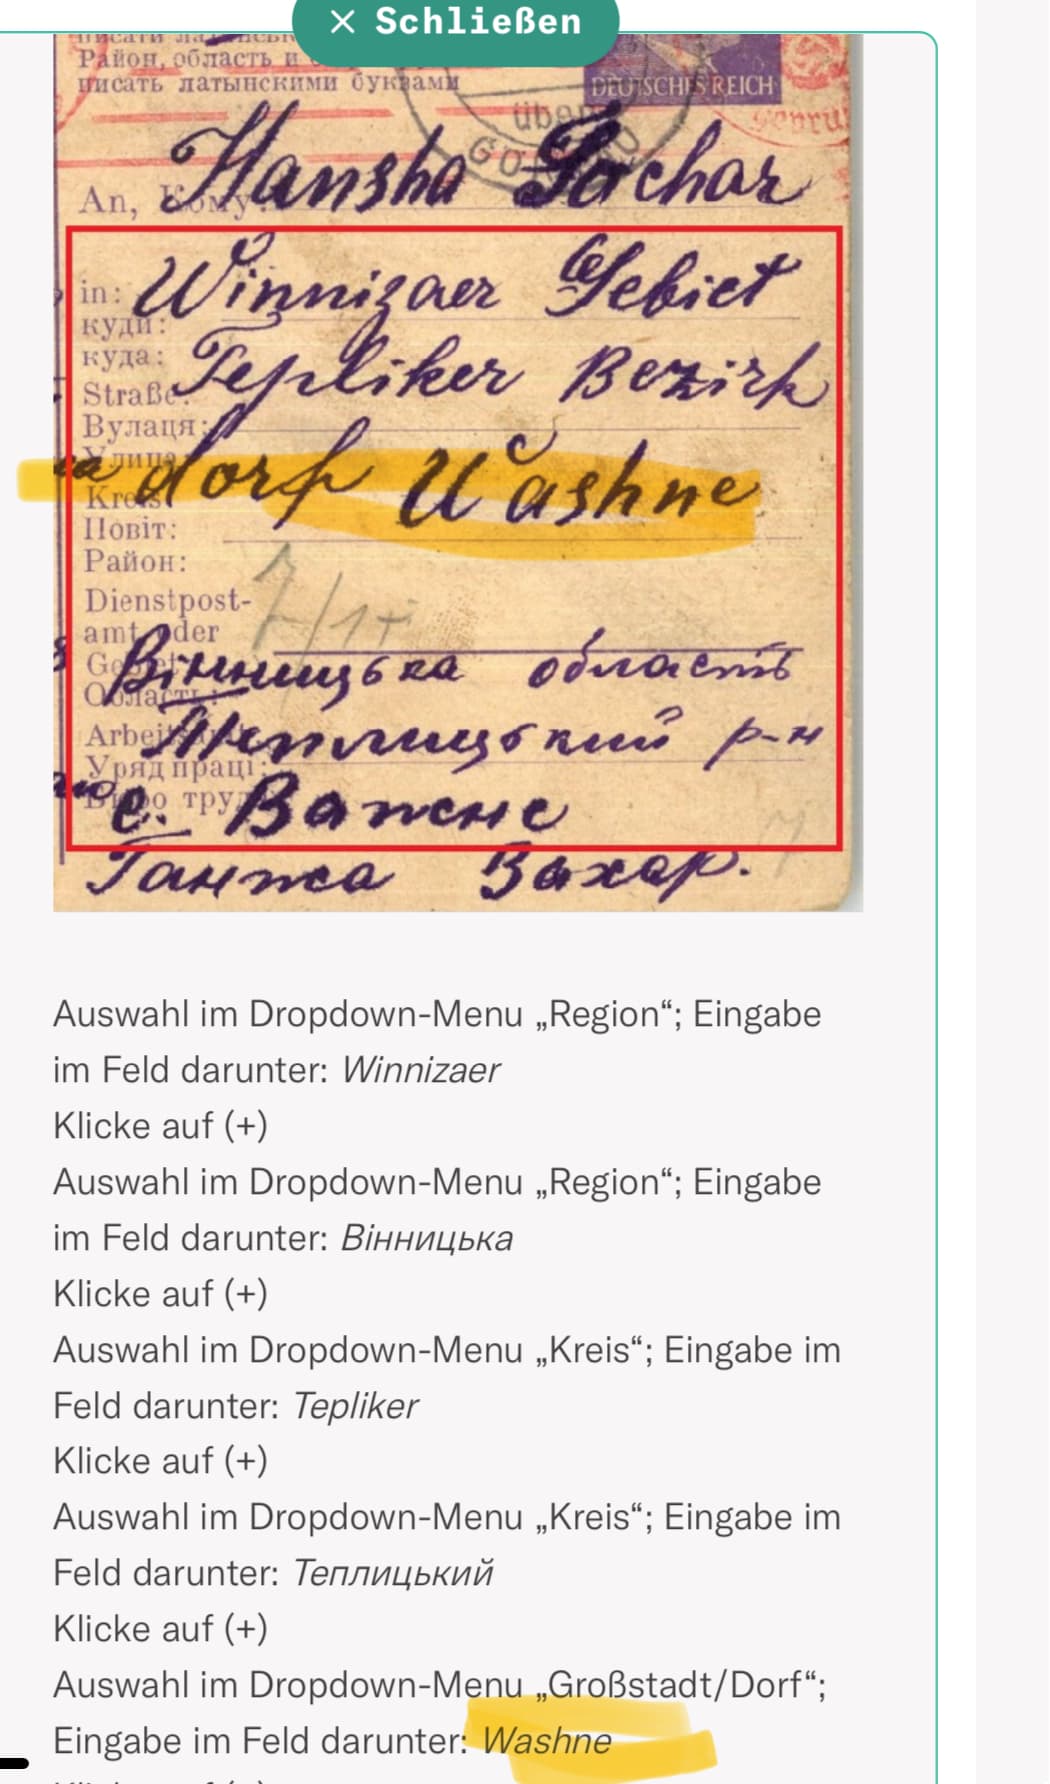 × Schließen
писати
Район, область и
писать латынскими буквами
DEUTSCHES REICH
über
An, Кому: Hansha Sachar
in: Winnizaer Gebiet
куди:
куда: Tepliker Bezirk
Straße:
Вулаця:
Улица:
dorf Washne
Kreis
Повіт:
Район:
Dienstpost-
amt oder
Gebiet: Вінницька область
Область:
Arbeits Теплицький р-н
Уряд праці:
Бюро труда с. Важне
Ганжа Захар.
Auswahl im Dropdown-Menu „Region“; Eingabe
im Feld darunter: Winnizaer
Klicke auf (+)
Auswahl im Dropdown-Menu „Region“; Eingabe
im Feld darunter: Вінницька
Klicke auf (+)
Auswahl im Dropdown-Menu „Kreis“; Eingabe im
Feld darunter: Tepliker
Klicke auf (+)
Auswahl im Dropdown-Menu „Kreis“; Eingabe im
Feld darunter: Теплицький
Klicke auf (+)
Auswahl im Dropdown-Menu „Großstadt/Dorf“;
Eingabe im Feld darunter: Washne